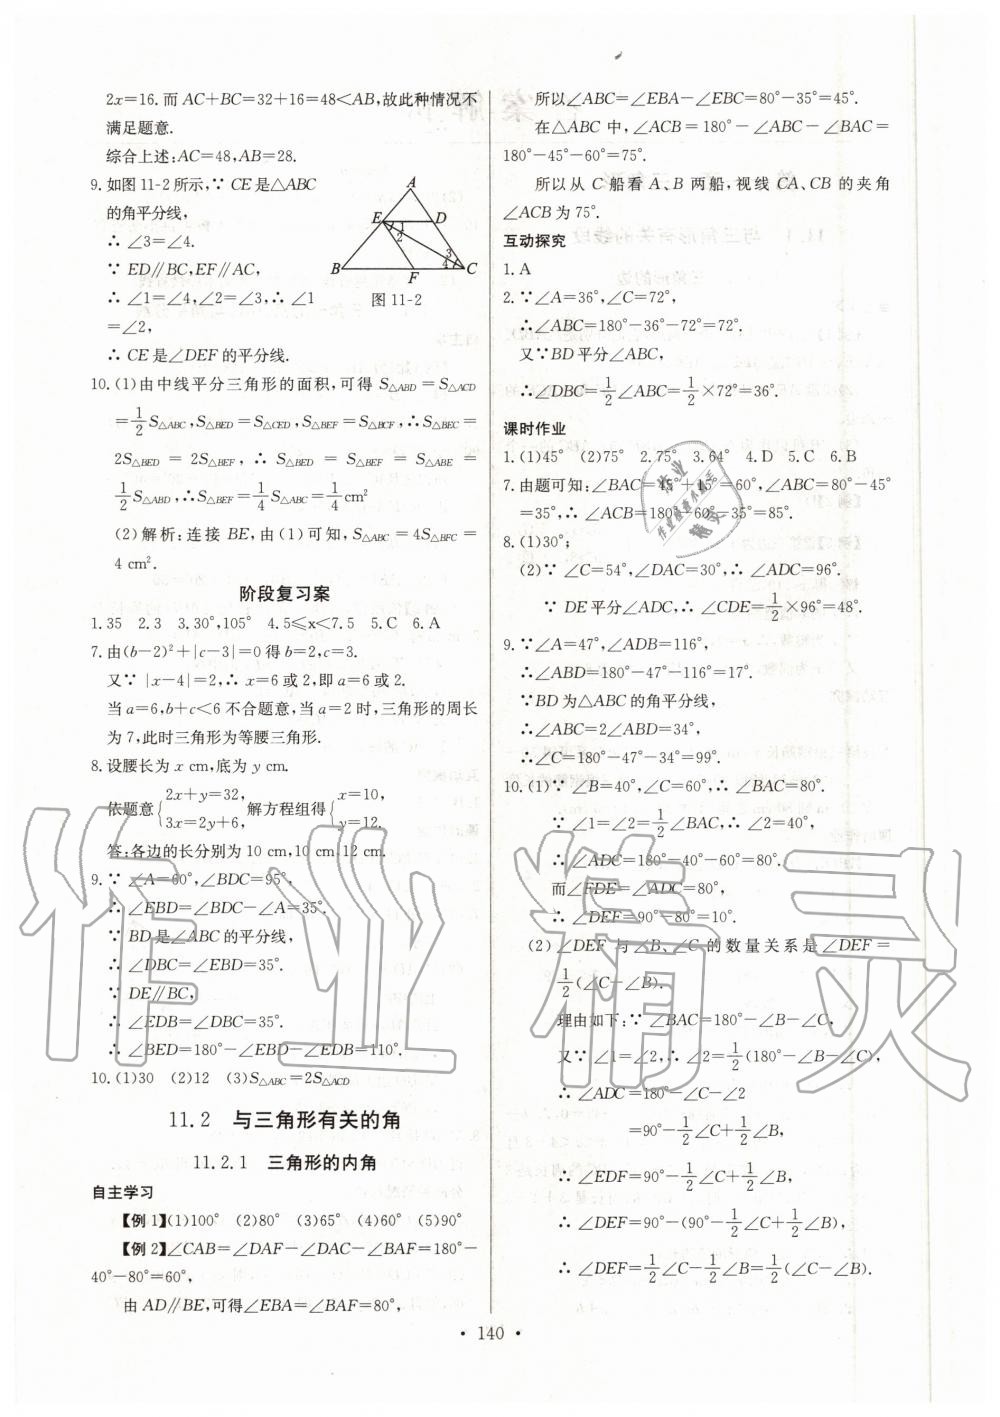 2x=16.而 AC+BC=32+16=48<AB,故此种情况不
满足题意.
综合上述:AC=48,AB=28.
9.如图11-2所示,∵ CE是△ABC
的角平分线,
∴ ∠3=∠4.
∵ ED∥BC,EF∥AC,
∴ ∠1=∠4,∠2=∠3,∴ ∠1
=∠2,
∴ CE是∠DEF的平分线.
A
E
D
1
2
3
4
B
F
C
图 11-2
10.(1)由中线平分三角形的面积,可得 S△ABD=S△ACD
=1/2 S△ABC,S△BED=S△CED,S△BEF=S△BCF,∴S△BEC=
2S△BED=2S△BEF,∴ S△BEF=S△BED=S△ABE=
1/2 S△ABD,∴S△BEF=1/4 S△ABC=1/4 cm²
(2)解析:连接 BE,由(1)可知,S△ABC=4S△BFC=
4 cm².
阶段复习案
1.35 2.3 3.30°,105° 4.5≤x<7.5 5.C 6.A
7.由(b-2)²+|c-3|=0得b=2,c=3.
又∵ |x-4|=2,∴ x=6或2,即a=6或2.
当a=6,b+c<6不合题意,当a=2时,三角形的周长
为7,此时三角形为等腰三角形.
8.设腰长为x cm,底为y cm.
依题意{2x+y=32, 3x=2y+6,解方程组得{x=10, y=12.
答:各边的长分别为10 cm,10 cm,12 cm.
9.∵ ∠A=60°,∠BDC=95°,
∴ ∠EBD=∠BDC-∠A=35°.
∵ BD是∠ABC的平分线,
∴ ∠DBC=∠EBD=35°.
∵ DE∥BC,
∴ ∠EDB=∠DBC=35°.
∴ ∠BED=180°-∠EBD-∠EDB=110°.
10.(1)30 (2)12 (3)S△ABC=2S△ACD
11.2 与三角形有关的角
11.2.1 三角形的内角
自主学习
【例1】(1)100° (2)80° (3)65° (4)60° (5)90°
【例2】∠CAB=∠DAF-∠DAC-∠BAF=180°-
40°-80°=60°,
由 AD∥BE,可得∠EBA=∠BAF=80°,
所以∠ABC=∠EBA-∠EBC=80°-35°=45°.
在△ABC中,∠ACB=180°-∠ABC-∠BAC=
180°-45°-60°=75°.
所以从 C 船看 A、B 两船,视线 CA、CB 的夹角
∠ACB为75°.
互动探究
1.A
2.∵∠A=36°,∠C=72°,
∴∠ABC=180°-36°-72°=72°.
又∵BD平分∠ABC,
∴∠DBC=1/2∠ABC=1/2×72°=36°.
课时作业
1.(1)45° (2)75° 2.75° 3.64° 4.D 5.C 6.B
7.由题可知:∠BAC=45°+15°=60°,∠ABC=80°-45°
=35°,∴ ∠ACB=180°-60°-35°=85°.
8.(1)30°;
(2)∵ ∠C=54°,∠DAC=30°,∴ ∠ADC=96°.
∵ DE平分∠ADC,∴ ∠CDE=1/2×96°=48°.
9.∵∠A=47°,∠ADB=116°,
∴∠ABD=180°-47°-116°=17°.
∵BD为△ABC的角平分线,
∴∠ABC=2∠ABD=34°,
∴∠C=180°-47°-34°=99°.
10.(1)∵ ∠B=40°,∠C=60°,∴ ∠BAC=80°.
∵ ∠1=∠2=1/2∠BAC,∴ ∠2=40°,
∴ ∠ADC=180°-40°-60°=80°.
而∠FDE=∠ADC=80°,
∴ ∠DEF=90°-80°=10°.
(2) ∠DEF 与∠B、∠C 的数量关系是∠DEF=
1/2(∠C-∠B).
理由如下:∵ ∠BAC=180°-∠B-∠C,
又∵ ∠1=∠2,∴ ∠2=1/2(180°-∠B-∠C),
∴ ∠ADC=180°-∠C-∠2
=90°-1/2∠C+1/2∠B,
∴ ∠EDF=90°-1/2∠C+1/2∠B,
∴ ∠DEF=90°-(90°-1/2∠C+1/2∠B),
∴ ∠DEF=1/2∠C-1/2∠B=1/2(∠C-∠B).
• 140 •
作业精灵